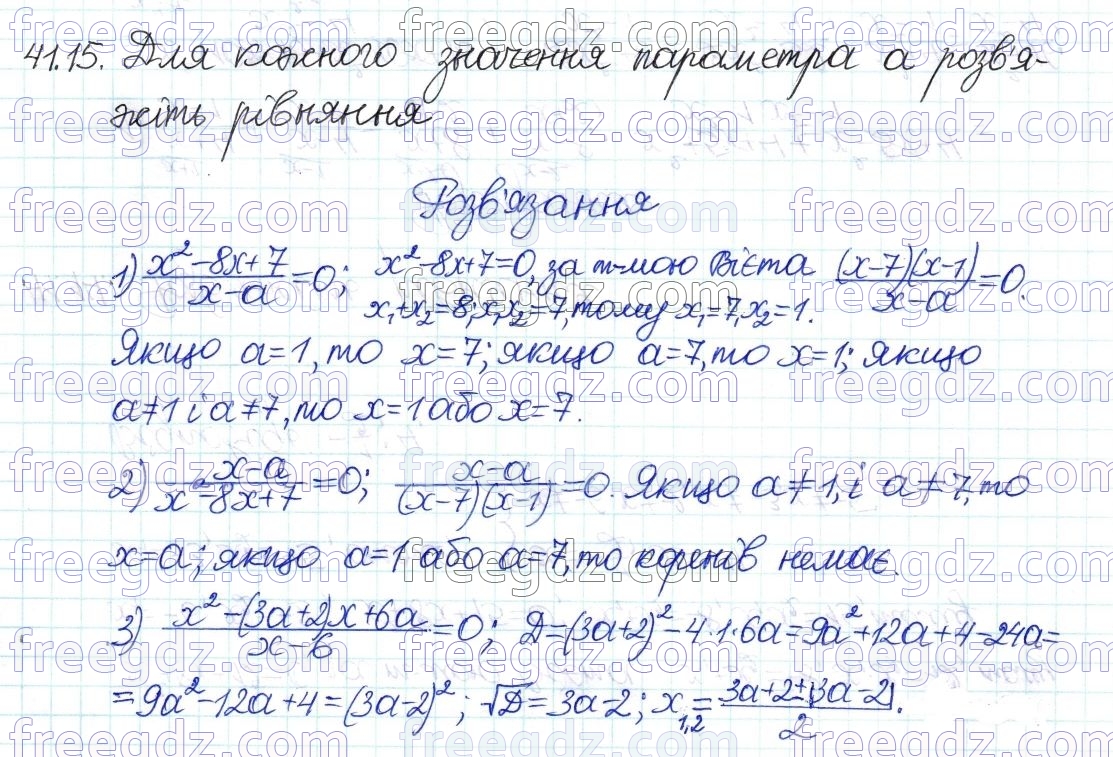 41.15. Для кожного значення параметра а розв'я-
жіть рівняння
Розв'язання
1) (x²-8x+7)/(x-a)=0; x²-8x+7=0, за т-мою Вієта ((x-7)(x-1))/(x-a)=0.
x₁+x₂=8; x₁x₂=7, тому x₁=7, x₂=1.
Якщо a=1, то x=7; якщо a=7, то x=1; якщо
a≠1 і a≠7, то x=1 або x=7.
2) (x-a)/(x²-8x+7)=0; (x-a)/((x-7)(x-1))=0. Якщо a≠1, і a≠7, то
x=a; якщо a=1 або a=7, то коренів немає.
3) (x²-(3a+2)x+6a)/(x-6)=0; D=(3a+2)²-4·1·6a=9a²+12a+4-24a=
=9a²-12a+4=(3a-2)²; √D=3a-2; x₁,₂=(3a+2±|3a-2|)/2.
freegdz.com